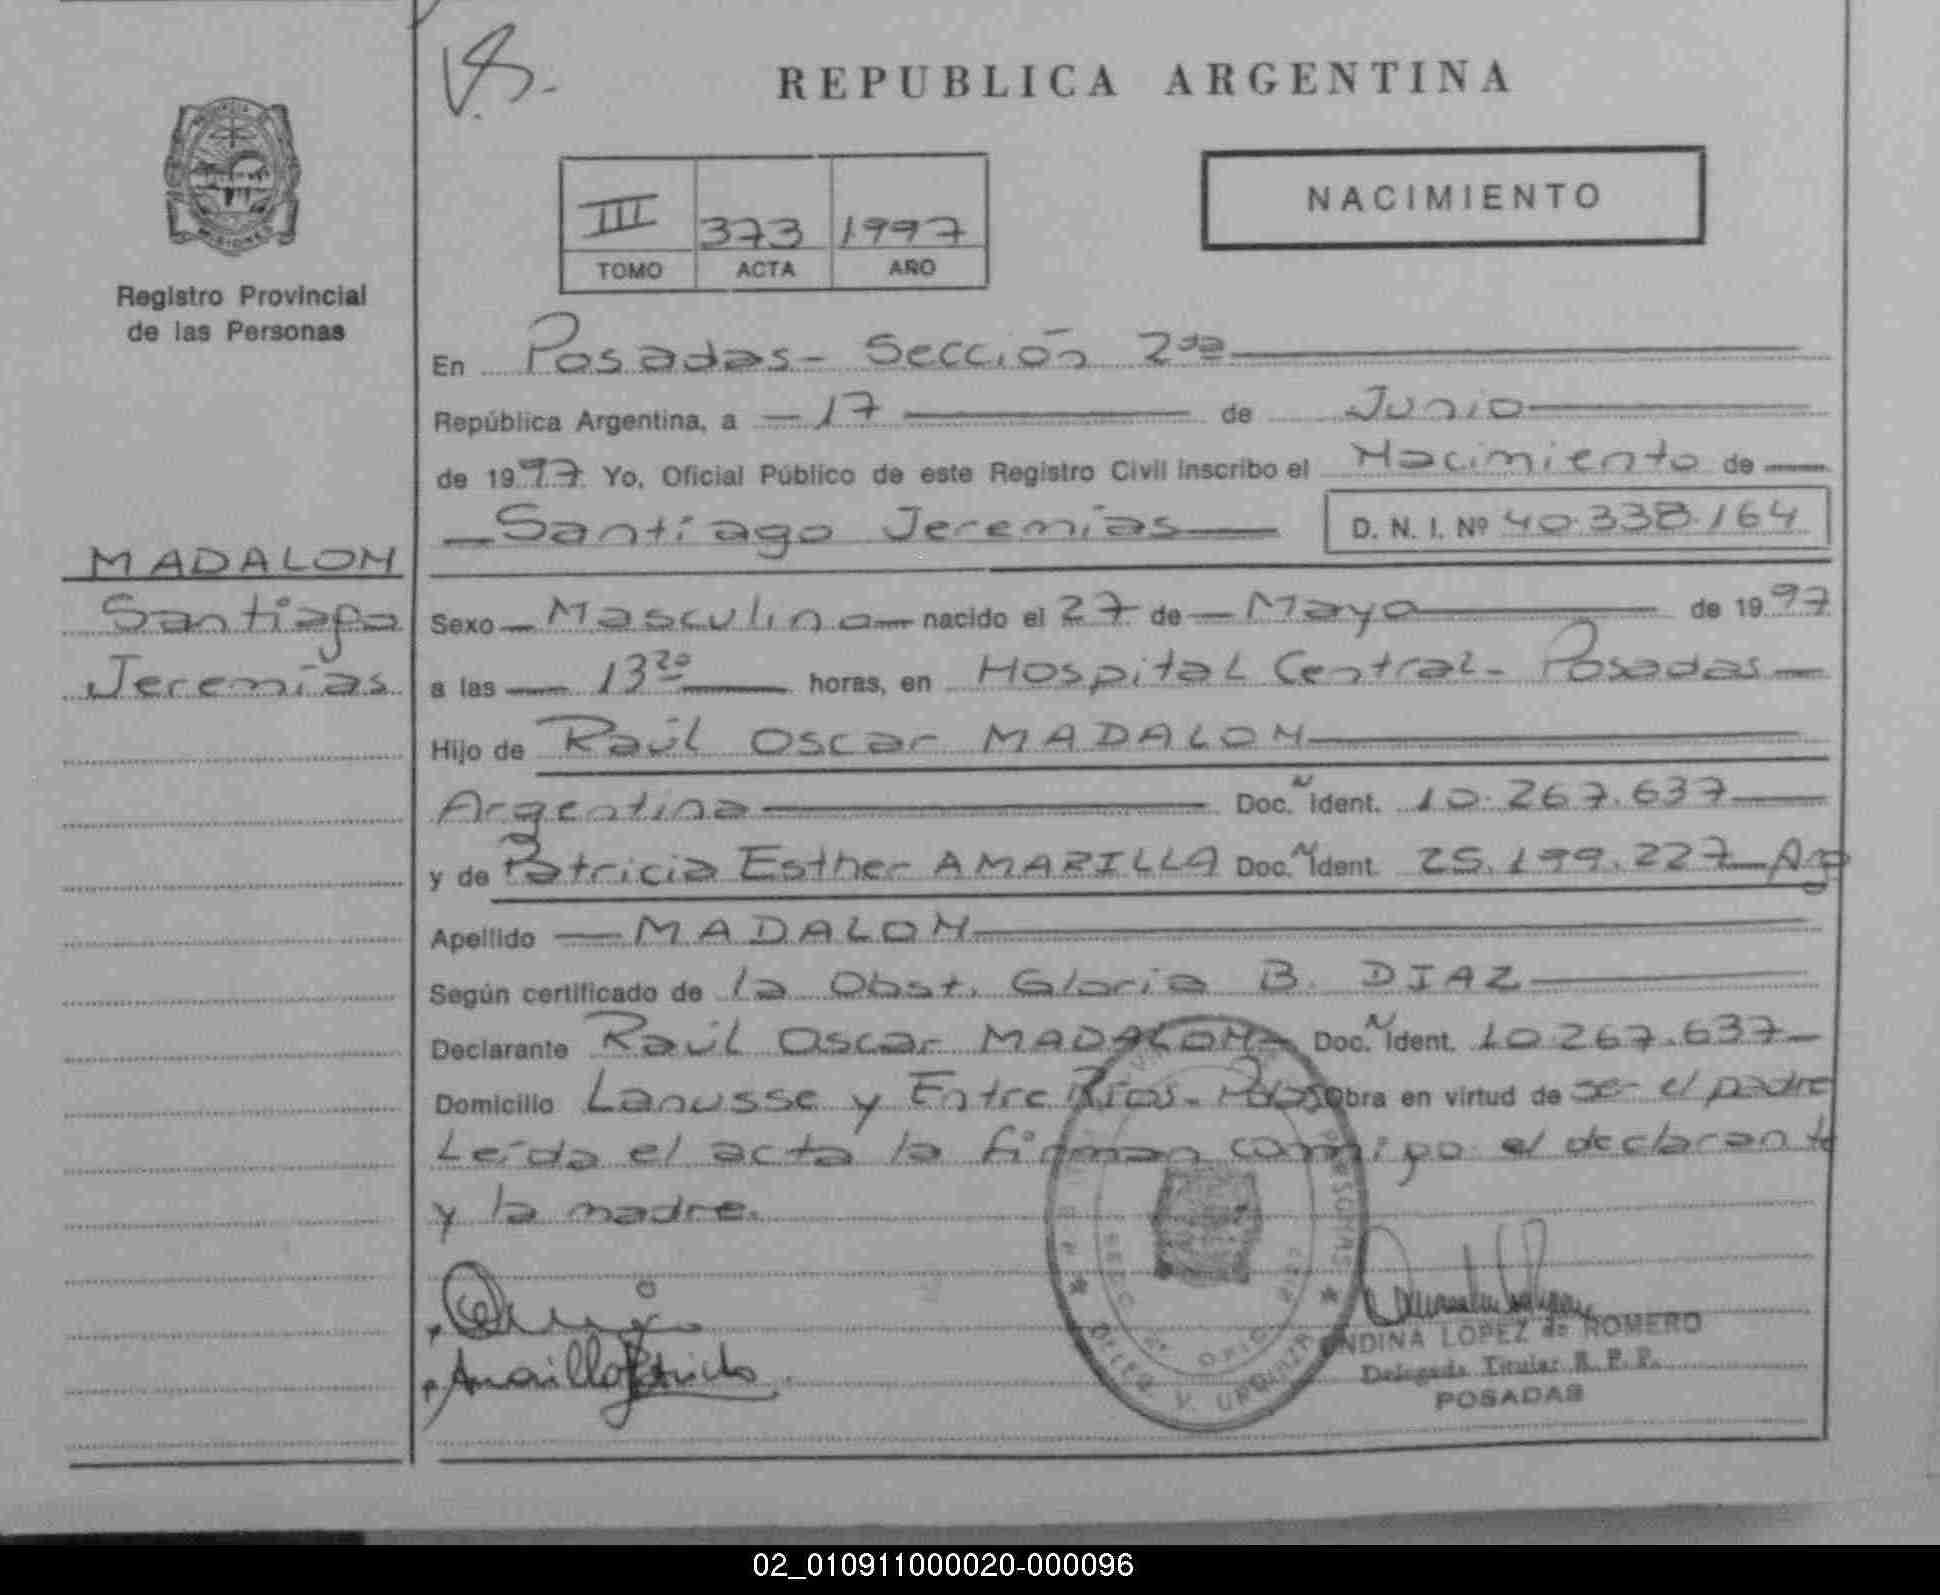 REPUBLICA ARGENTINA
NACIMIENTO
III 373 1997
TOMO ACTA AÑO
Registro Provincial
de las Personas
MADALON
Santiago
Jeremías
En Posadas - Sección 2da
República Argentina, a 17 de Junio
de 1997 Yo, Oficial Público de este Registro Civil inscribo el Nacimiento de
Santiago Jeremías D. N. I. Nº 40.338.164
Sexo Masculino nacido el 27 de Mayo de 1997
a las 13 20 horas, en Hospital Central - Posadas
Hijo de Raúl Oscar MADALON
Argentina Doc. N Ident. 10.267.637
y de Patricia Esther AMARILLA Doc. N Ident. 25.199.227 Arg
Apellido MADALON
Según certificado de la Obst. Gloria B. DIAZ
Declarante Raúl Oscar MADALON Doc. N Ident. 10.267.637
Domicilio Lanusse y Entre Ríos - Pdas Obra en virtud de ser el padre
Leída el acta la firman conmigo el declarante
y la madre.
Amarilla Patricia
ONDINA LOPEZ de ROMERO
Delegada Titular R. P. P.
POSADAS
02_010911000020-000096